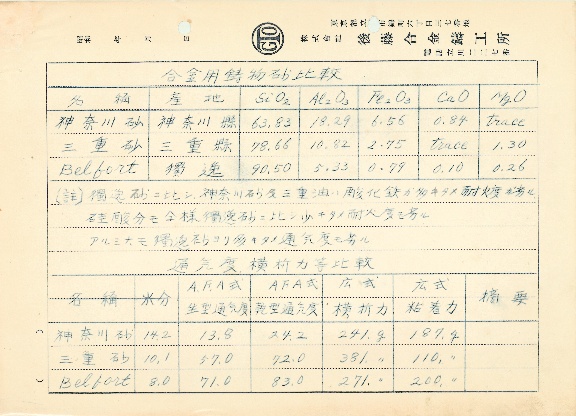 昭和 年 六 月
GIO
株式会社 後藤合金鋳工所
合金用鋳物砂比較
名稱 産地 SiO₂ Al₂O₃ Fe₂O₃ CaO MgO
神奈川砂 神奈川縣 63.83 18.29 6.56 0.84 trace
三重砂 三重縣 78.66 10.82 2.75 trace 1.30
Belfort 獨逸 90.50 5.33 0.99 0.10 0.26
(註) 獨逸砂ニ比シ、神奈川砂及三重油ハ酸化鉄が多キタメ耐火度が劣ル
硅酸分モ全様獨逸砂ニ比シ少キタメ耐火度モ劣ル
アルミナモ獨逸砂ヨリ多キタメ通気度モ劣ル
通気度 横折力等比較
名稱 水分 A.F.A式 生型通気度 A.F.A式 乾型通気度 広式 横折力 広式 粘着力 摘要
神奈川砂 14.2 13.8 24.2 241.g 187.g
三重砂 10.1 57.0 72.0 381.〃 110.〃
Belfort 8.0 71.0 83.0 271.〃 200.〃